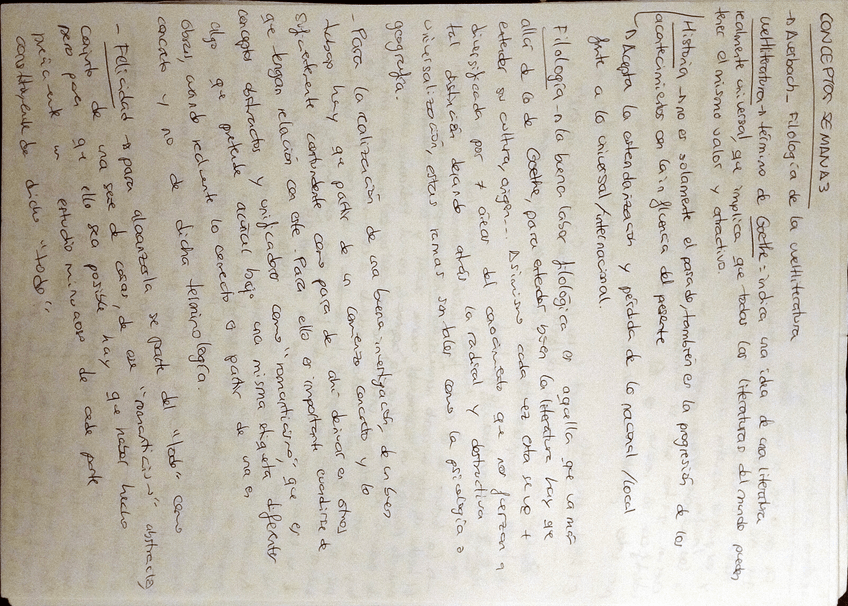 CONCEPTOS SEMANA 3
→ Auerbach_ Filología de la weltliteratura
weltliteratura → término de Goethe = indica una idea de una literatura
realmente universal, que implica que todas las literaturas del mundo pueden
tener el mismo valor y atractivo.
Historia → no es solamente el pasado, también es la progresión de los
acontecimientos con la influencia del presente
↳ Acepta la estandarización y pérdida de lo nacional / local
frente a lo universal/internacional.
Filología → la buena labor filológica es aquella que va más
allá de la de Goethe, para entender bien la literatura hay que
entender su cultura, origen... Asimismo cada vez esta se ve +
diversificada por ≠ áreas del conocimiento que nos fuerzan a
tal distinción dejando atrás la radical y destructiva
universalización, estas ramas son tales como la psicología o
geografía.
- Para la realización de una buena investigación, de un buen
trabajo hay que partir de un comienzo concreto y lo
suficientemente contundente como para de ahí derivar en otros
que tengan relación con este. Para ello es importante evadirse de
conceptos abstractos y unificadores como "romanticismo" que es
algo que pretende acuñar bajo una misma etiqueta diferentes
obras, cuando realmente lo correcto es partir de una en
concreto y no de dicha terminología.
- Felicidad → para alcanzarla se parte del "todo" como
conjunto de una serie de cosas, de ese "romanticismo" abstracto,
pero para que ello sea posible hay que haber hecho
previamente un estudio minucioso de cada parte
constituyente de dicho "todo".